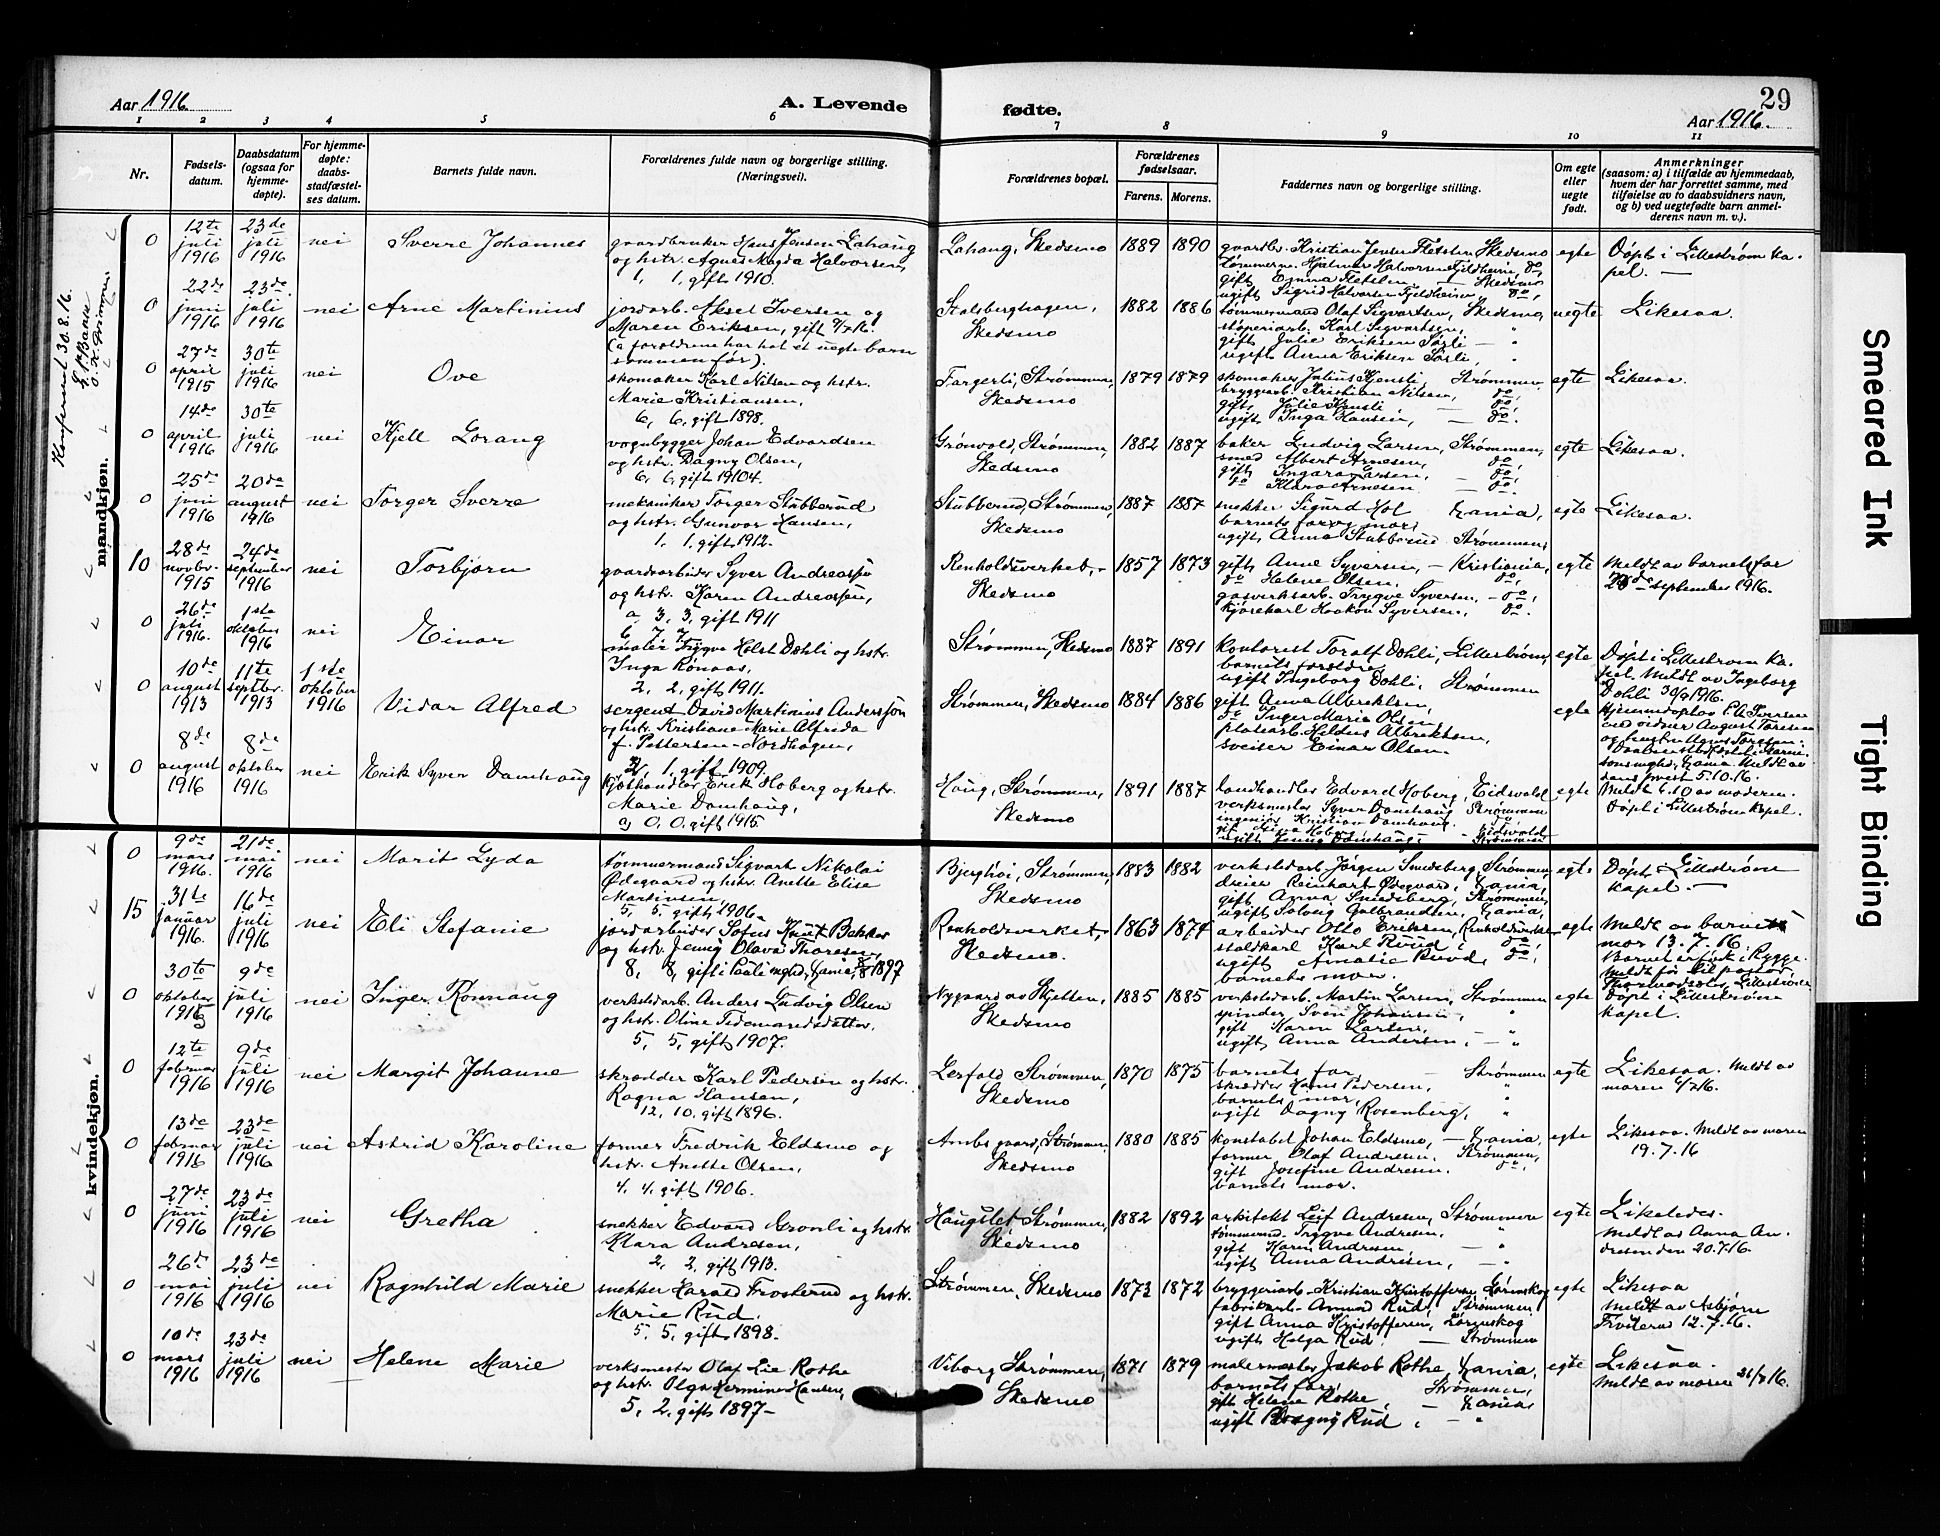 Aar 1916
A. Levende
fødte.
29
Aar 1916.
1 2 3 4 5 6 7 8 9 10 11
Nr.
Fødsels-
datum.
Daabsdatum
(ogsaa for
hjemme-
døpte).
For hjemme-
døpte:
daabs-
stadfæstel-
ses datum.
Barnets fulde navn.
Forældrenes fulde navn og borgerlige stilling.
(Næringsvei).
Forældrenes bopæl.
Forældrenes
fødselsaar.
Farens. Morens.
Faddernes navn og borgerlige stilling.
Om egte
eller
uegte
født.
Anmerkninger
(saasom: a) i tilfælde av hjemmedaab,
hvem der har forrettet samme, med
tilføielse av to daabsvidners navn,
og b) ved uegtefødte barn anmel-
derens navn m. v.).
Konfereret 30.8.16.
mandkjøn.
0
12te
juli
1916
23de
juli
1916
nei
Sverre Johannes
gaardbruker Hans Jensen Lahaug
og hstr. Agnes Magda Halvorsen,
1, 1. gift 1910.
Lahaug, Skedsmo
1889 1890
gaardbr. Kristian Jensen Fletsten Skedsmo
egte
Døpt i Lillestrøm ka-
pel. —
0
22de
juni
1916
23de
juli
1916
nei
Arne Martinius
jordarb. Aksel Iversen og
Maren Eriksen, gift 9/7 16.
(a forældrene har hat et uegte barn
sammen før).
Stalsberghagen,
Skedsmo
1882 1886
tømmermand Olaf Sigvartsen, Skedsmo,
støperiarb. Karl Sigvartsen, "
gift Julie Eriksen Sørli — "
ugift Anna Eriksen Sørli, "
uegte
Likesaa.
0
27de
april
1915
30te
juli
1916
nei
Ove
skomaker Karl Nilsen og hstr.
Marie Kristiansen,
6, 6. gift 1898.
Fargerli, Strømmen,
Skedsmo
1879 1879
skomaker Julius Kjensli, Strømmen
bryggearb. Kristian Nilsen, do,
gift Julie Kjensli — do,
ugift Inga Hansen, — do.
egte
Likesaa.
0
14de
april
1916
30te
juli
1916
nei
Kjell Lorang
vognbygger Johan Edvardsen
og hstr. Dagny Olsen,
6, 6, gift 19104.
Grønvold, Strømmen,
Skedsmo
1882 1887
baker Ludvig Larsen, Strømmen,
smed Albert Arnesen, do,
gift Ingara Larsen, — do,
do Klara Arnesen — do.
egte
Likesaa.
0
25de
juni
1916
20de
august
1916
nei
Torger Sverre
mekaniker Torger Stubberud
og hstr. Gunvor Hansen,
1, 1. gift 1912.
Stubberud, Strømmen,
Skedsmo
1887 1887
snekker Sigurd Hol Kania,
barnets far og mor,
ugift Anna Stubberud Strømmen,
egte
Likesaa.
10
28de
novbr.
1915
24de
september
1916
nei
Torbjørn
gaardsarbeider Syver Andreassen
og hstr. Karen Andreassen,
a 3, 3, gift 1911
b 7, 7,
Renholdsverket, —
Skedsmo
1857 1873
gift Anne Syversen, — Kristiania,
do Helene Olsen, do,
gasverksarb. Trygve Syversen, — do,
kjørekarl Haakon Syversen, do.
egte
Meldt av barnets far
september 1916.
0
26de
juli
1916.
1ste
oktober
1916
nei
Einar
maler Trygve Holst Døhli og hstr.
Inga Rønaas,
2, 2, gift 1911.
Strømmen, Skedsmo
1887 1891
kontorist Toralf Døhli, Lillestrøm,
barnets forældre,
ugift Ingeborg Døhli, Strømmen
egte
Døpt i Lillestrøm ka-
pel. Meldt av Ingeborg
Døhli 30/9 1916.
0
10de
august
1913
11te
septbr.
1913
1ste
oktober
1916
Vidar Alfred
sergent David Martinius Anderssøn
og hstr. Kristiane Marie Alfreda
f. Pettersen-Nordhagen,
2, 1. gift 1909.
Strømmen, Skedsmo
1884 1886
gift Anna Albrektsen,
do Inger Marie Olsen,
platearb. Hildus Albrektsen,
sveiser Einar Olsen.
egte
0
8de
august
1916
8de
oktober
1916
nei
Erik Syver Damhaug
kjøthandler Erik Hoberg og hstr.
Marie Damhaug,
a, 0, 0. gift 1915.
Haug, Strømmen,
Skedsmo
1891 1887
landhandler Edvard Hoberg, Eidsvold
verksmester Syver Damhaug Strømmen
ingeniør Kristian Damhaug
egte
Meldt 6.10 av moderen.
Døpt i Lillestrøm kapel.
kvindekjøn.
0
9de
mars
1916.
21de
mai
1916
nei
Marit Lyda
tømmermand Sigvart Nikolai
Ødegaard og hstr. Anette Elise
Martinsen,
5, 5, gift 1906.
Bjerghøi, Strømmen,
Skedsmo
1883 1882
verkstedarb. Jørgen Smedsberg, Strømmen,
dreier Reinhart Ødegaard, Kania,
gift Agna Smedsberg, Strømmen,
ugift Solveig Gulbrandsen, Kania,
egte
Døpt i Lillestrøm
kapel. —
15
31te
januar
1916.
16de
juli
1916
nei
Eli Stefanie
jordarbeider Sofus Knut Bakker
og hstr. Jenny Olava Thoresen,
8, 8, gift i Pauli mghed, Kania, 1897
Renholdsverket,
Skedsmo.
1863 1874
arbeider Otto Eriksen, Renholdsverket
staldkarl Karl Ruud, do
ugift Amalie Ruud, do,
barnets mor.
egte
Meldt av barnets
mor 13.7.16.
Barnet er født i Rygge.
0
30te
oktober
1915
9de
juli
1916
nei
Inger Rønnaug
verkstedarb. Anders Ludvig Olsen
og hstr. Oline Tidemandsdatter.
5, 5, gift 1907.
Nygaard av Skjetten,
Skedsmo
1885 1885
verkstedarb. Martin Larsen, Strømmen
spinder Sven Johansen, "
gift Karen Larsen, "
ugift Anna Andersen, — "
egte
Døpt i Lillestrøm
kapel.
0
12te
februar
1916
9de
juli
1916
nei
Margit Johanne
skrædder Karl Pedersen og hstr.
Ragna Hansen,
12, 10. gift 1896.
Lerfald Strømmen,
Skedsmo
1870 1875
barnets far, — Strømmen
skrædder Hans Pedersen, "
barnets mor, "
ugift Dagny Rosenberg, "
egte
Likesaa. Meldt av
moren 6/7 16.
0
13de
februar
1916
23de
juli
1916
nei
Astrid Karoline
former Fredrik Eldsmo og
hstr. Anette Olsen,
4, 4. gift 1906.
Ambs gaard, Strømmen,
Skedsmo
1880 1885
konstabel Johan Eldsmo, — Kania,
former Olaf Andresen, Strømmen,
gift Josefine Andresen, do,
barnets mor.
egte
Likesaa. Meldt av moren
19.7.16
0
27de
juni
1916
23de
juli
1916
nei
Gretha
snekker Edvard Grønli og hstr.
Klara Andresen,
2, 2, gift 1913.
Haugslet Strømmen,
Skedsmo
1882 1892
arkitekt Leif Andresen, Strømmen
tømmermd. Trygve Andresen, "
gift Karen Andresen, — "
ugift Anna Andresen, — "
egte
Likeledes.
Meldt av Anna An-
dresen den 20.7.16.
0
26de
mai
1916
23de
juli
1916
nei
Ragnhild Marie
snekker Harald Frosterud og hstr.
Marie Rud.
5, 5, gift 1898.
Strømmen, Skedsmo
1873 1872
bryggeriarb. Kristian Kristoffersen, Lørenskog
fabrikarb. Amund Rud, Strømmen,
gift Anna Kristoffersen, Lørenskog
ugift Helga Rud. — Strømmen
egte
Likesaa
Meldt av Asbjørn
Frosterud 12.7.16.
0
10de
mars
1916
23de
juli
1916
nei
Helene Marie
verksmester Olaf Lie Rothe
og hstr. Olga Hermine Hansen,
5, 2. gift 1897 —
Viborg Strømmen,
Skedsmo
1871 1879
malermester Jakob Rothe, Kania,
barnets far, Strømmen,
gift Helene Rothe, — Kania,
ugift Dagny Rud, — "
egte
Likesaa.
Meldt av moren 21/7 16.
Smeared Ink
Tight Binding